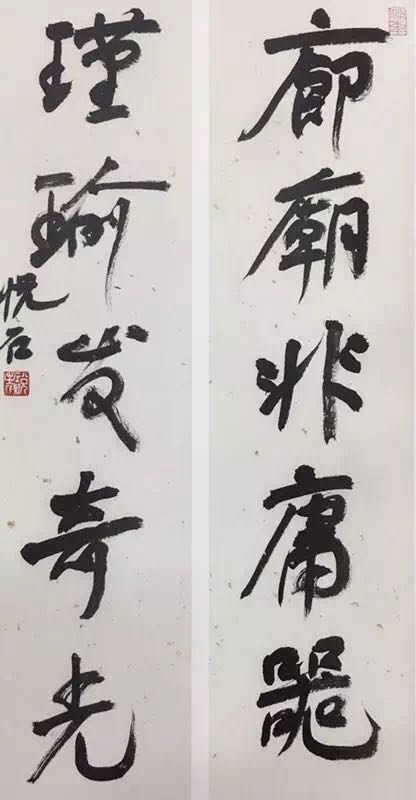 廊廟非庸器
瑾瑜发奇光
悦石